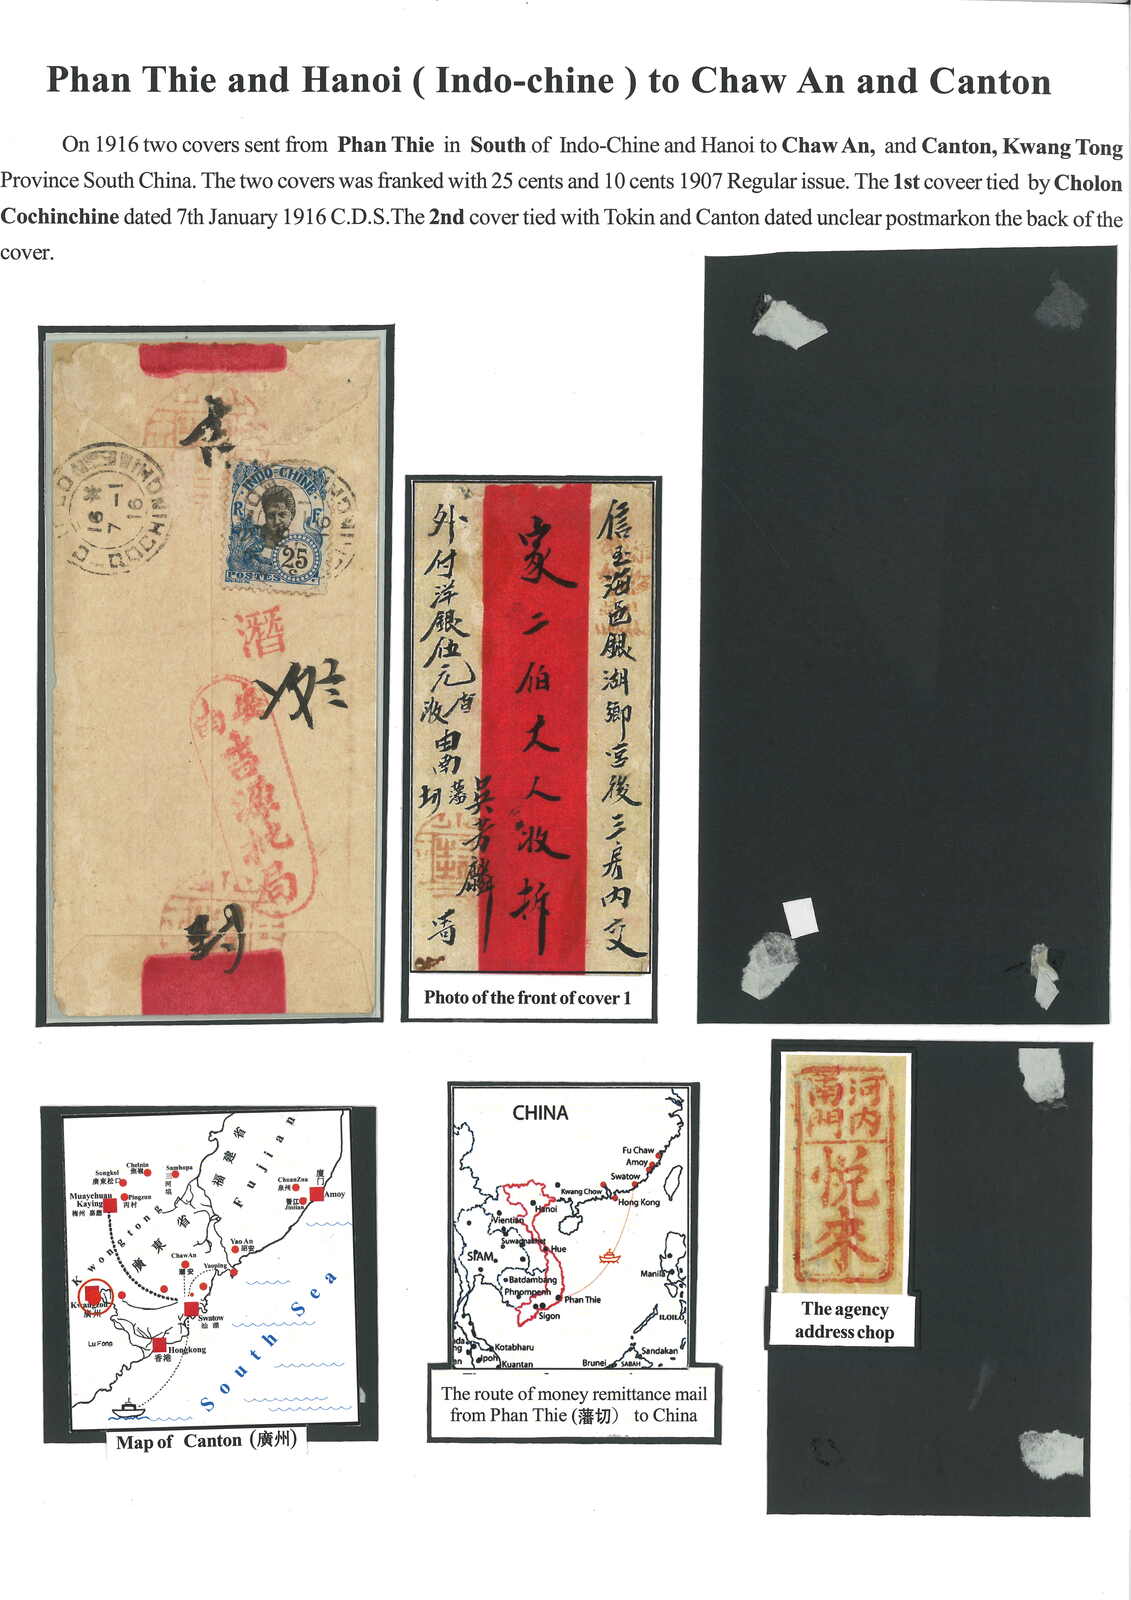 Phan Thie and Hanoi ( Indo-chine ) to Chaw An and Canton
On 1916 two covers sent from Phan Thie in South of Indo-Chine and Hanoi to Chaw An, and Canton, Kwang Tong
Province South China. The two covers was franked with 25 cents and 10 cents 1907 Regular issue. The 1st coveer tied by Cholon
Cochinchine dated 7th January 1916 C.D.S.The 2nd cover tied with Tokin and Canton dated unclear postmarkon the back of the
cover.
16 *
7 -1
16
COCHINCHINE
INDO-CHINE
R F
25
c
POSTES
吉源批局
封
信至海邑銀湖鄉宮後三房內交
家二伯大人收拆
外付洋銀伍元
吳芳麟
Photo of the front of cover 1
福建省
Fujian
Chelnin
Songkol
廣東松口
Samhopa
三河埧
Muaychuan
Kaying
梅州 嘉應
Pingzun
丙村
ChuanZou
泉州
晋江
Jinlian
厦門
Amoy
Kwongtong
廣東省
Yao An
詔安
ChawAn
潮安
Yaoping
Kwangzou
廣州
Swatow
汕頭
Lu Fong
Hongkong
香港
South Sea
Map of Canton (廣州)
CHINA
Fu Chaw
Amoy
Swatow
Kwang Chow
Hong Kong
Hanoi
Vientian
Suwagnakhet
Hue
SIAM
Batdambang
Phnompenh
Phan Thie
Sigon
Manila
ILOILO
Kotabharu
Ipoh
Kuantan
Brunei
SABAH
Sandakan
The route of money remittance mail
from Phan Thie (藩切) to China
河內
南門
悅來
The agency
address chop